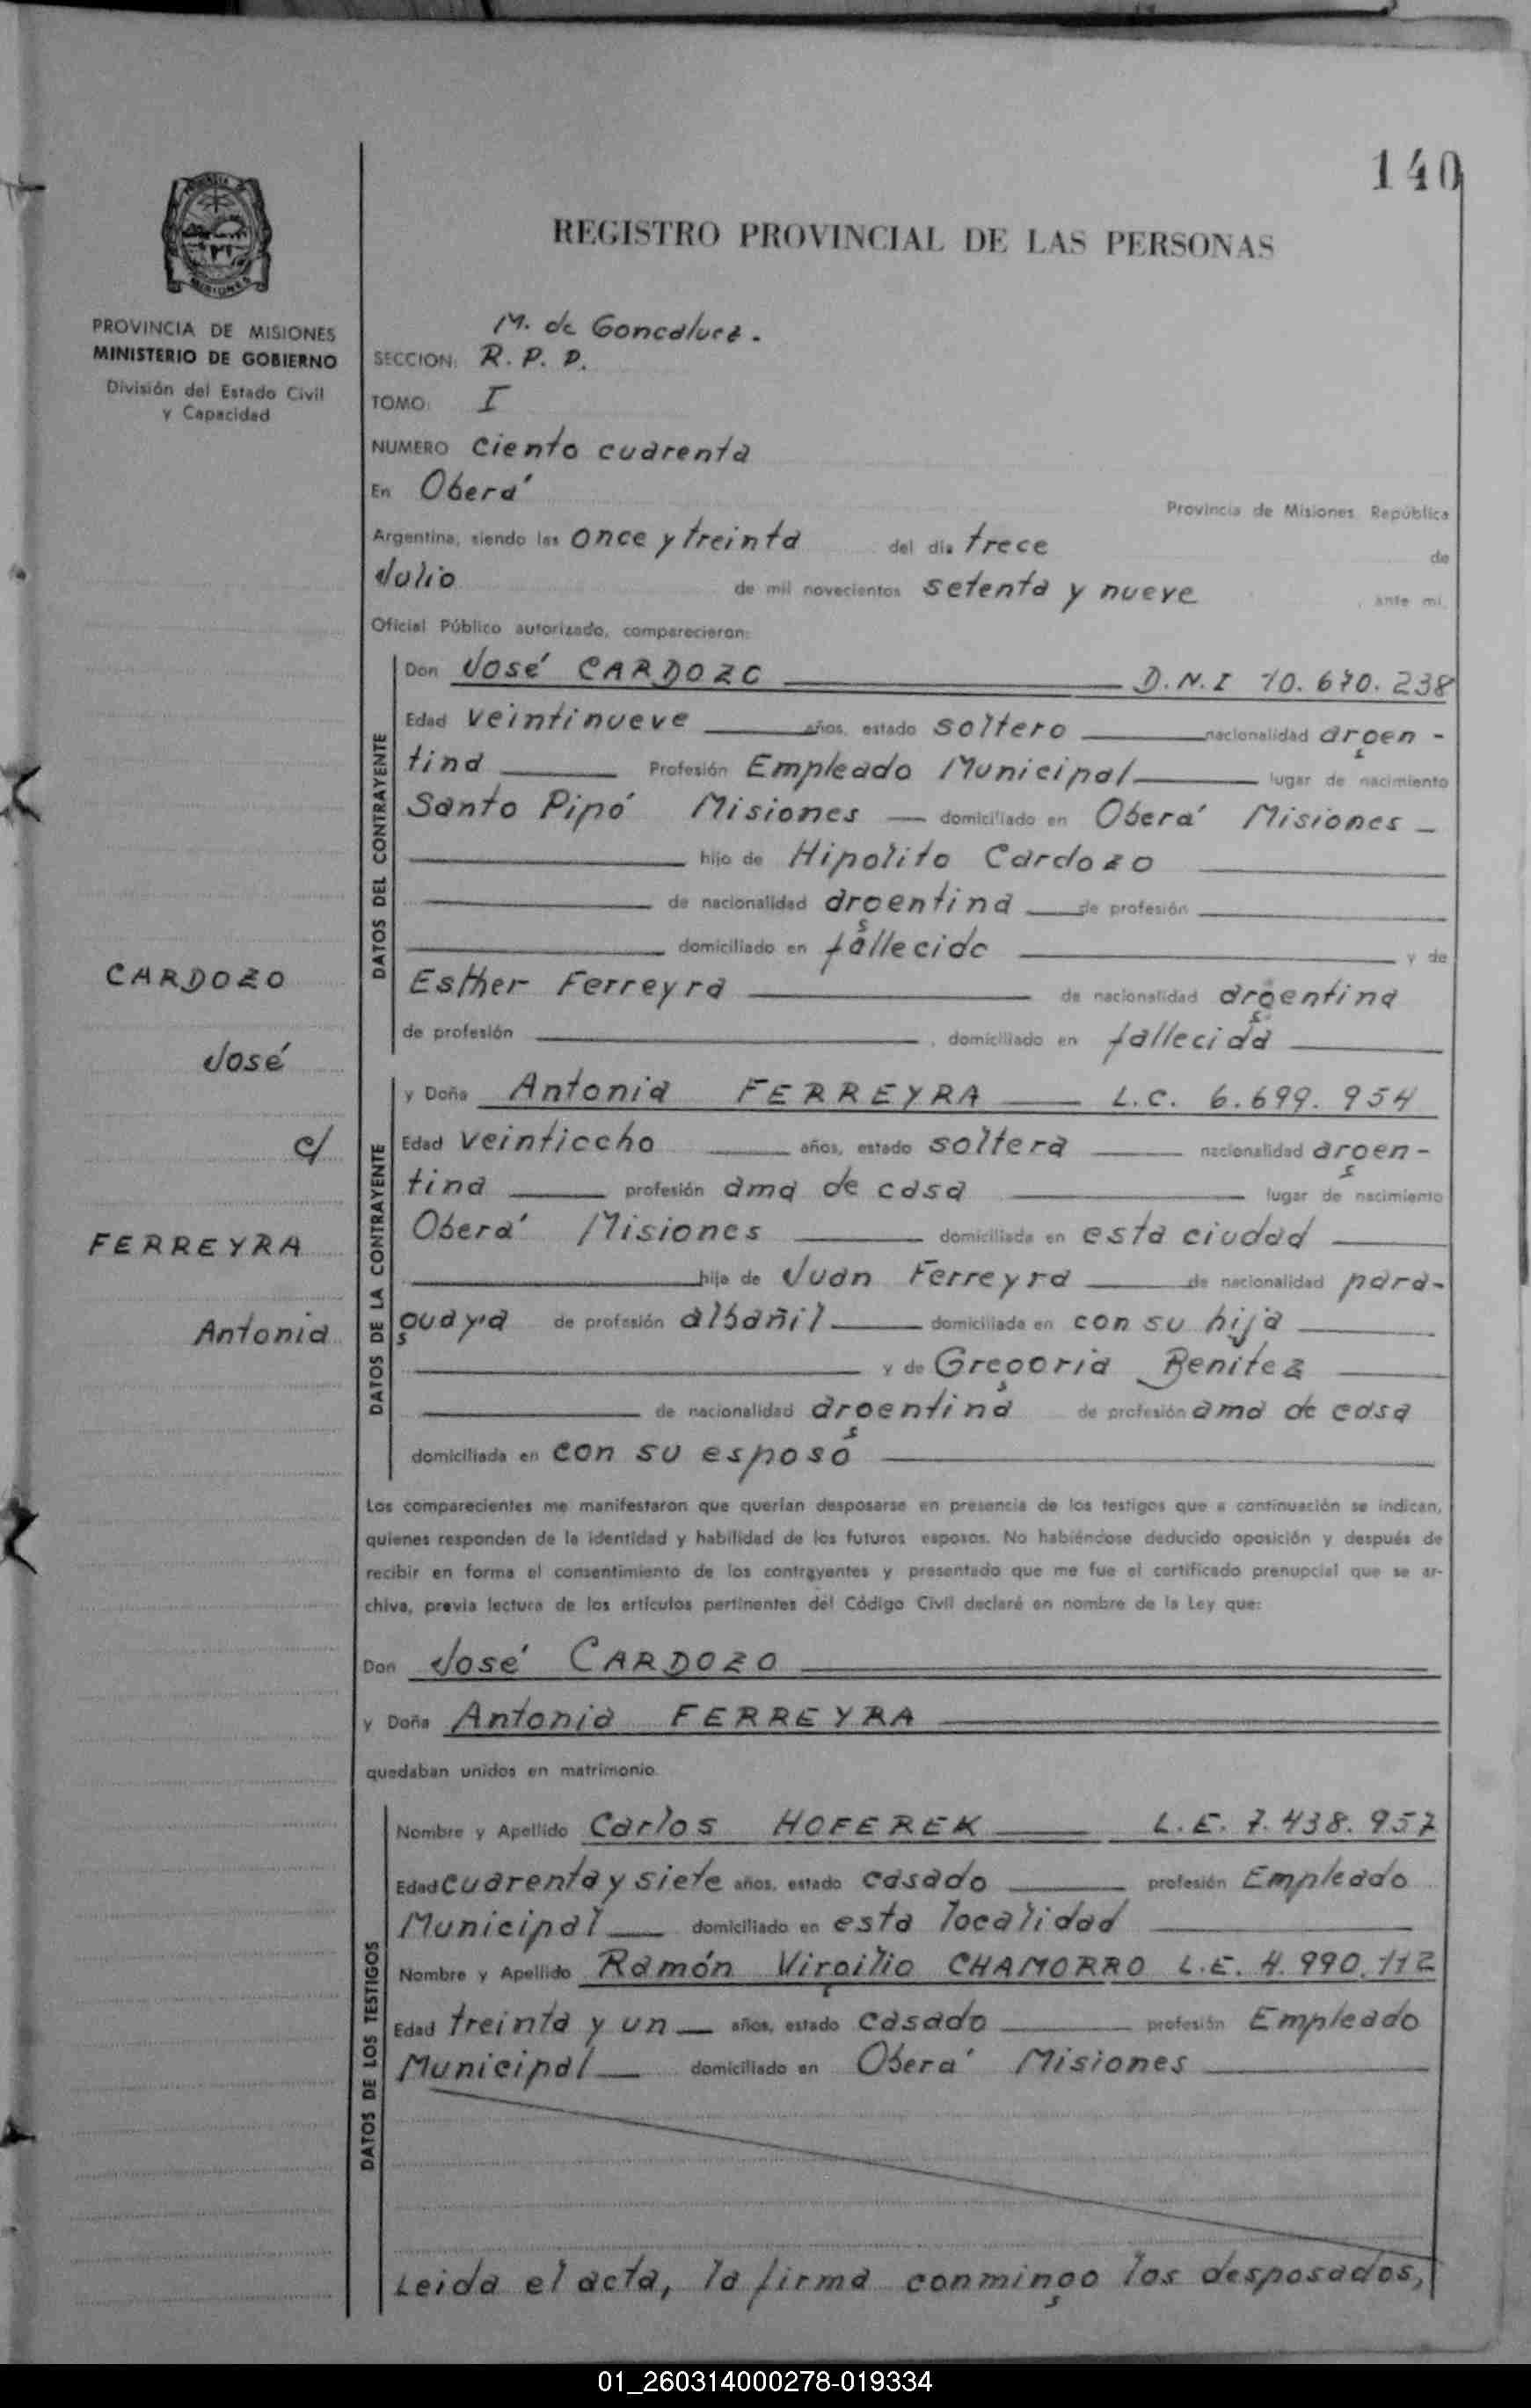 140
REGISTRO PROVINCIAL DE LAS PERSONAS
PROVINCIA DE MISIONES
MINISTERIO DE GOBIERNO
División del Estado Civil
y Capacidad
M. de Goncalves.
SECCION: R. P. P.
TOMO: I
NUMERO ciento cuarenta
En Oberá
Provincia de Misiones República
Argentina, siendo las once y treinta del día trece de
Julio de mil novecientos setenta y nueve, ante mí,
Oficial Público autorizado, comparecieron:
DATOS DEL CONTRAYENTE
Don José CARDOZO D.N.I 10.670.238
Edad veintinueve años, estado soltero nacionalidad argen-
tina Profesión Empleado Municipal lugar de nacimiento
Santo Pipó Misiones domiciliado en Oberá Misiones
hijo de Hipolito Cardozo
de nacionalidad argentina de profesión
domiciliado en fallecido y de
Esther Ferreyra de nacionalidad argentina
de profesión , domiciliado en fallecida
CARDOZO
José
c/
FERREYRA
Antonia
DATOS DE LA CONTRAYENTE
y Doña Antonia FERREYRA L.C. 6.699.954
Edad veintiocho años, estado soltera nacionalidad argen-
tina profesión ama de casa lugar de nacimiento
Oberá Misiones domiciliada en esta ciudad
hija de Juan Ferreyra de nacionalidad para-
guaya de profesión albañil domiciliada en con su hija
y de Gregoria Benitez
de nacionalidad argentina de profesión ama de casa
domiciliada en con su esposo
Los comparecientes me manifestaron que querían desposarse en presencia de los testigos que a continuación se indican,
quienes responden de la identidad y habilidad de los futuros esposos. No habiéndose deducido oposición y después de
recibir en forma el consentimiento de los contrayentes y presentado que me fue el certificado prenupcial que se ar-
chiva, previa lectura de los artículos pertinentes del Código Civil declaré en nombre de la Ley que:
Don José CARDOZO
y Doña Antonia FERREYRA
quedaban unidos en matrimonio.
DATOS DE LOS TESTIGOS
Nombre y Apellido Carlos HOFEREK L.E. 7.438.957
Edad cuarenta y siete años, estado casado profesión Empleado
Municipal domiciliado en esta localidad
Nombre y Apellido Ramón Virgilio CHAMORRO L.E. 4.990.112
Edad treinta y un años, estado casado profesión Empleado
Municipal domiciliado en Oberá Misiones
Leida el acta, la firma conmingo los desposados,
01_260314000278-019334